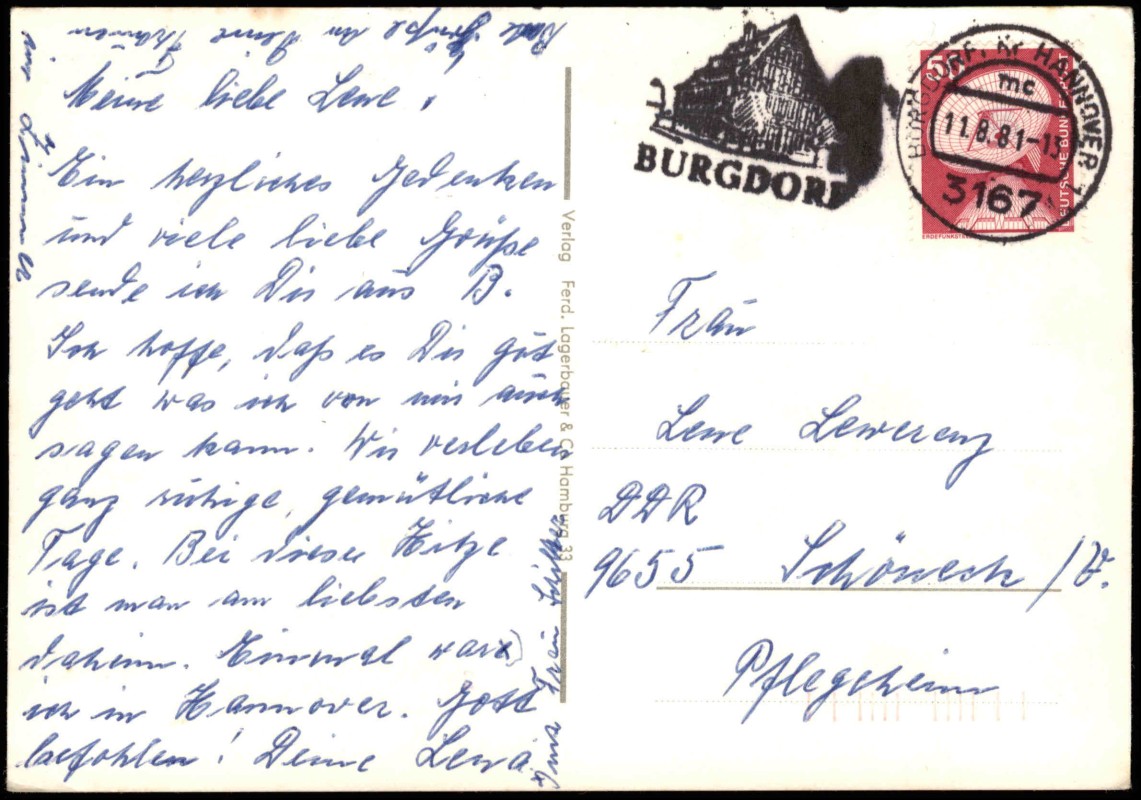 Meine liebe Lene,
Ein herzliches Gedenken
und viele liebe Grüße
sende ich Dir aus B.
Ich hoffe, daß es Dir gut
geht was ich von mir auch
sagen kann. Wir verleben
ganz ruhige, gemütliche
Tage. Bei dieser Hitze
ist man am liebsten
daheim. Einmal war
ich in Hannover. Gott
befohlen! Deine Lena
Grüße an Deine
im Zimmer
Frau
Verlag Ferd. Lagerbauer & Co Hamburg 33
BURGDORF
BURGDORF, Kr HANNOVER
mc
11.8.81-13
3167
DEUTSCHE BUNDESPOST
Frau
Lene Lewerenz
DDR
9655 Schöneck /V.
Pflegeheim